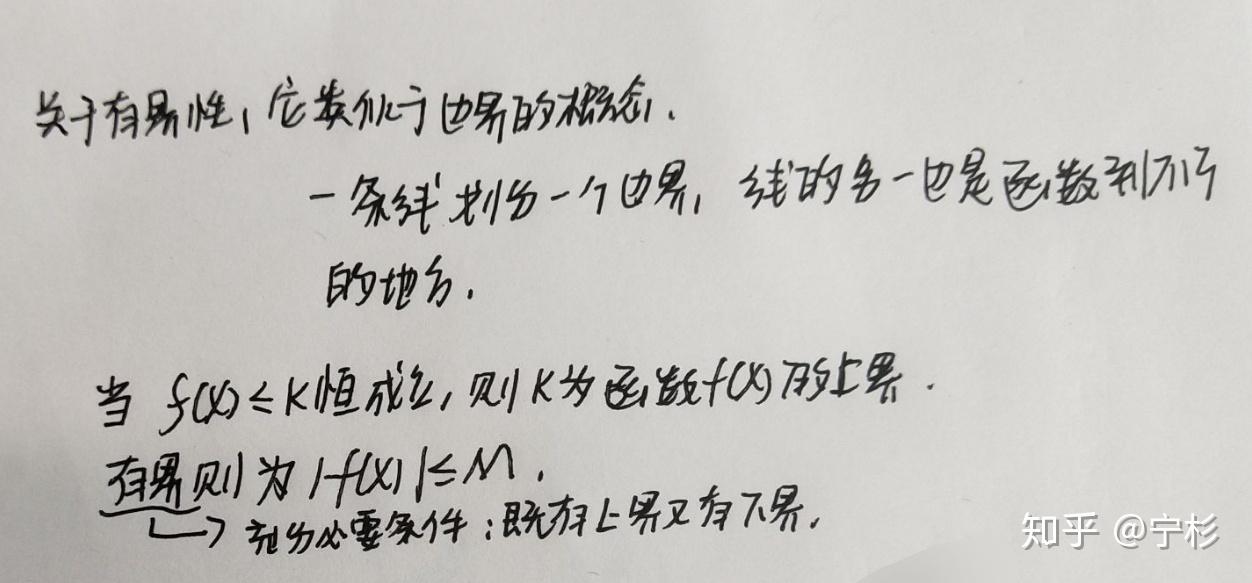 关于有界性，它类似于边界的概念.
一条线划分一个边界，线的另一边是函数到不了
的地方.
当 f(x)≤K恒成立，则K为函数f(x)的上界.
有界则为|f(x)|≤M.
充分必要条件：既有上界又有下界.
知乎 @宁杉